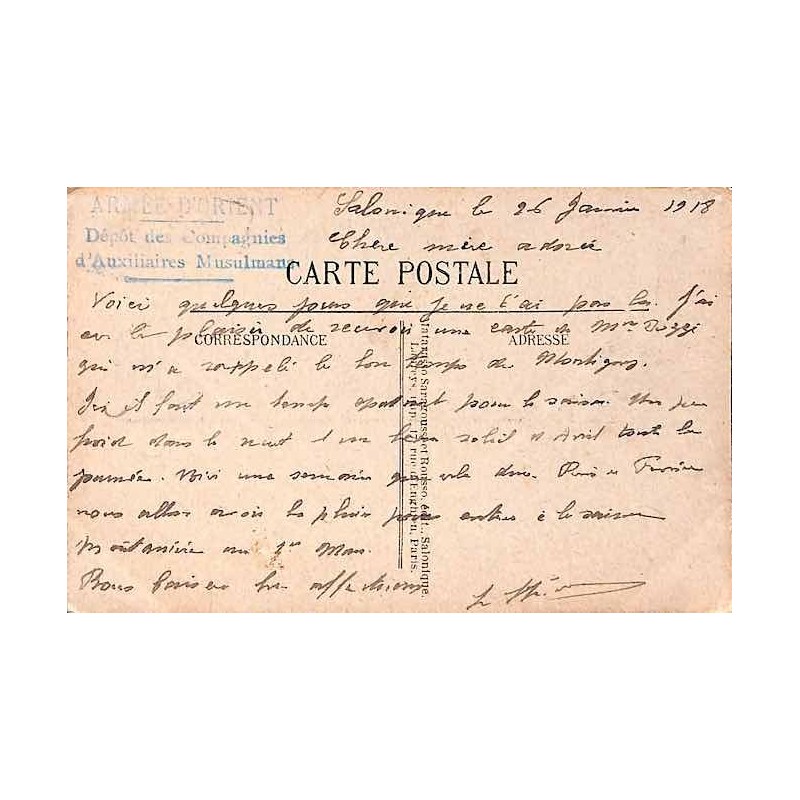 ARMÉE D'ORIENT
Dépôt des Compagnies
d'Auxiliaires Musulmans
Salonique le 26 Janvier 1918
Chère mère adorée
CARTE POSTALE
Voici quelques jours que je ne t'ai pas lu. J'ai
eu le plaisir de recevoir une carte de Mme
CORRESPONDANCE
ADRESSE
qui m'a rappelé le bon temps de Montigny.
Ici il fait un temps épatant pour la saison. Un peu
froid dans la nuit et un beau soleil d'Avril toute la
journée. Voici une semaine que cela dure. Puis en Février
nous allons avoir la pluie pour entrer à la saison
au 1er Mars.
Bons baisers affectueux
Matarasso Saragoussi et Rousso, édit., Salonique.
imp., 17, rue d'Enghien, Paris.